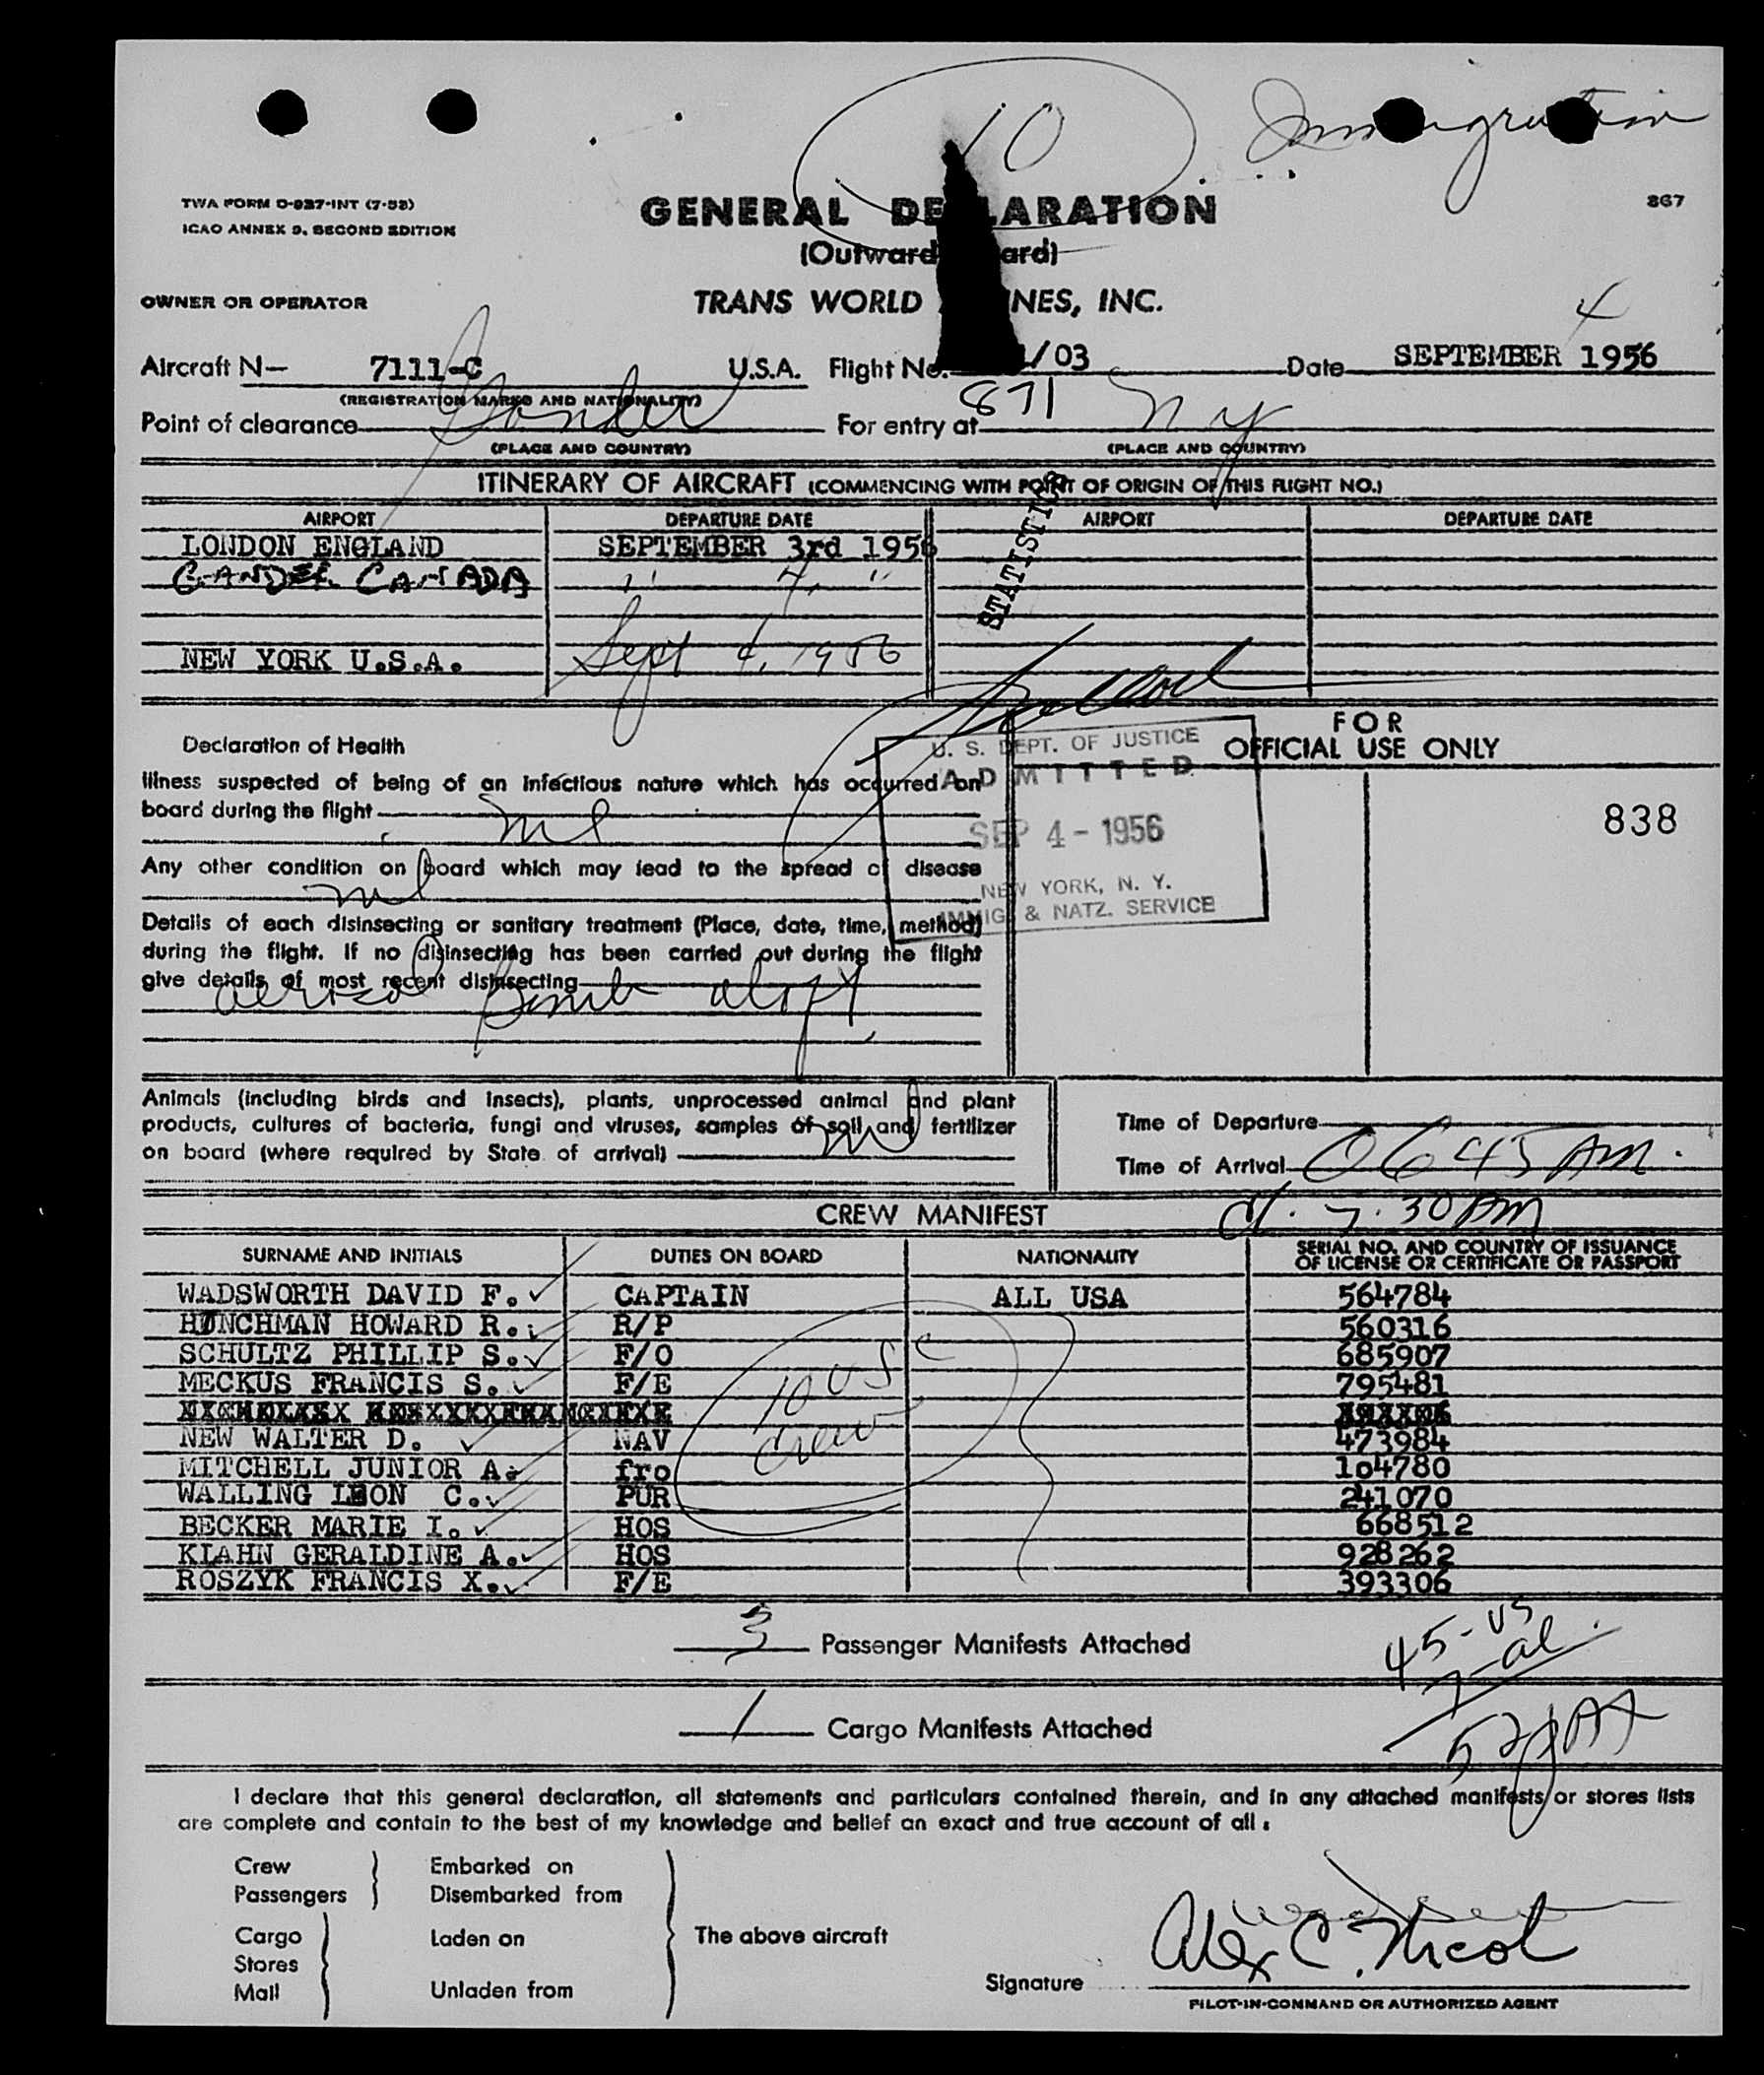 10
Immigration
TWA FORM O-937-INT (7-53)
ICAO ANNEX 9, SECOND EDITION
867
GENERAL DE LARATION
(Outward ard)
OWNER OR OPERATOR
TRANS WORLD NES, INC.
4
Aircraft N— 7111-C U.S.A. Flight No. /03 Date SEPTEMBER 1956
(REGISTRATION MARKS AND NATIONALITY)
871
Point of clearance Gander For entry at N Y
(PLACE AND COUNTRY) (PLACE AND COUNTRY)
ITINERARY OF AIRCRAFT (COMMENCING WITH POINT OF ORIGIN OF THIS FLIGHT NO.)
STATISTICS
AIRPORT DEPARTURE DATE AIRPORT DEPARTURE DATE
LONDON ENGLAND SEPTEMBER 3rd 1956
GANDER CANADA " 4, "
NEW YORK U.S.A. Sept 4, 1956
FOR
OFFICIAL USE ONLY
838
U. S. DEPT. OF JUSTICE
ADMITTED
SEP 4 - 1956
NEW YORK, N. Y.
IMMIG. & NATZ. SERVICE
Declaration of Health
Illness suspected of being of an infectious nature which has occurred on
board during the flight nil
Any other condition on board which may lead to the spread of disease
nil
Details of each disinsecting or sanitary treatment (Place, date, time, method)
during the flight. If no disinsecting has been carried out during the flight
give details of most recent disinsecting
aerosol bomb
Animals (including birds and insects), plants, unprocessed animal and plant
products, cultures of bacteria, fungi and viruses, samples of soil and fertilizer
on board (where required by State of arrival) nil
Time of Departure
Time of Arrival 0645 AM.
7:30 AM
CREW MANIFEST
SURNAME AND INITIALS DUTIES ON BOARD NATIONALITY SERIAL NO. AND COUNTRY OF ISSUANCE
OF LICENSE OR CERTIFICATE OR PASSPORT
WADSWORTH DAVID F. CAPTAIN ALL USA 564784
HUNCHMAN HOWARD R. R/P 560316
SCHULTZ PHILLIP S. F/O 685907
MECKUS FRANCIS S. F/E 795481
NEW WALTER D. NAV 473984
MITCHELL JUNIOR A. fro 104780
WALLING LEON C. PUR 241070
BECKER MARIE I. HOS 668512
KLAHN GERALDINE A. HOS 928262
ROSZYK FRANCIS X. F/E 393306
10 USC
Crew
3 Passenger Manifests Attached
45-US
7-al
1 Cargo Manifests Attached
52
I declare that this general declaration, all statements and particulars contained therein, and in any attached manifests or stores lists
are complete and contain to the best of my knowledge and belief an exact and true account of all :
Crew Embarked on
Passengers Disembarked from
Cargo Laden on The above aircraft
Stores
Mail Unladen from
Signature Alex C. Nicol
PILOT-IN-COMMAND OR AUTHORIZED AGENT